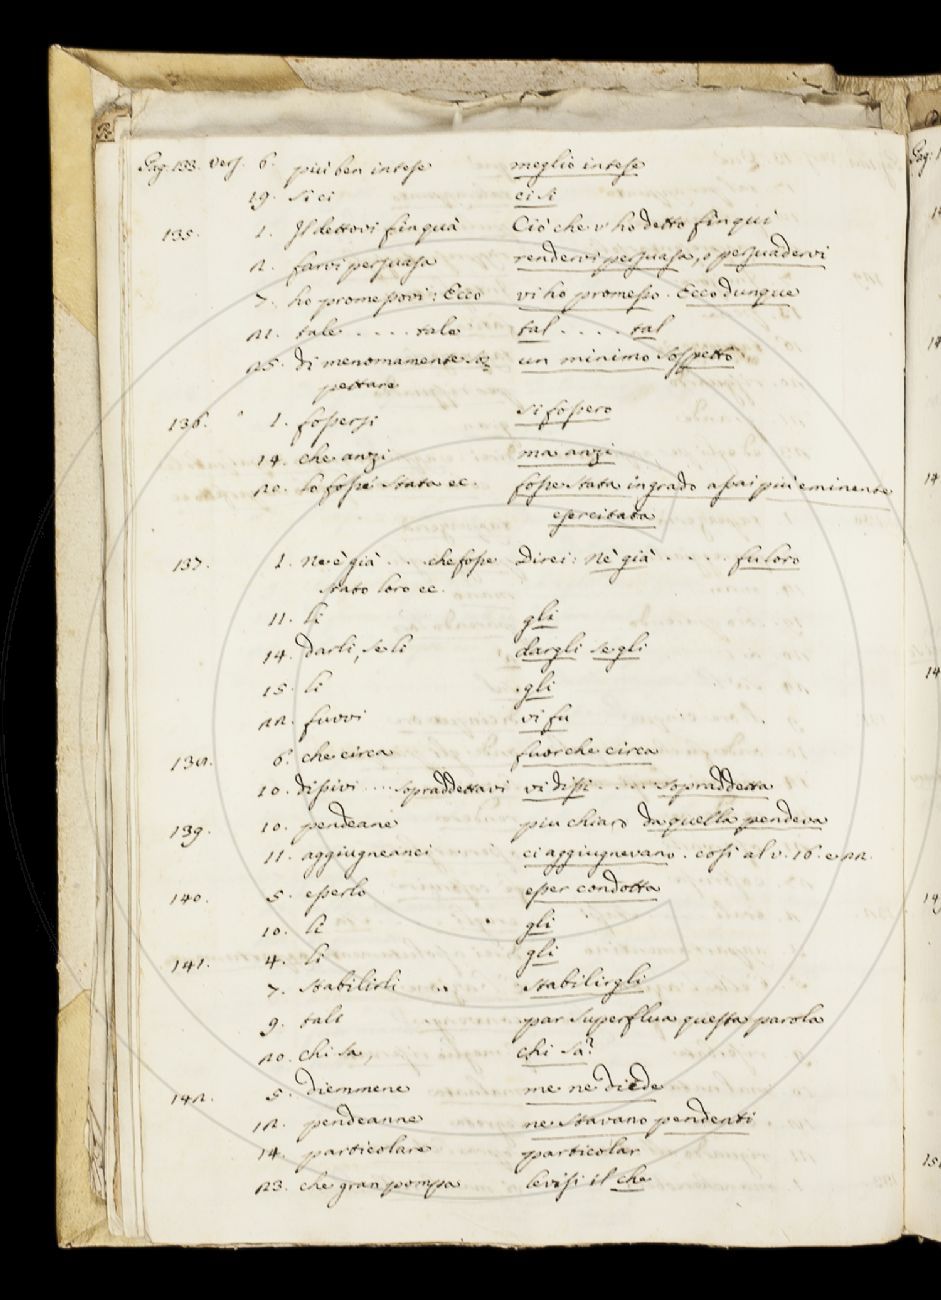 Pag. 133. vers. 6. più ben intese meglio intese
19. si ci ci si
135. 1. Il dettovi finquà Ciò che v'ho detto finqui
2. farvi persuasa rendervi persuasa, o persuadervi
7. ho promessovi: Ecco vi ho promesso. Ecco dunque
21. tale .... tale tal .... tal
25. di menomamente so=
spettare un minimo sospetto
136. 1. fossersi si fossero
14. che anzi ma anzi
20. lo fosse stata ec. fosse stata in grado assai più eminente
esercitata
137. 1. Ne è già ... che fosse Direi: Nè già .... fu loro
stato loro ec.
11. li gli
14. darli, se li dargli se gli
15. li gli
22. fuvvi vi fu
138. 6. che circa fuorche circa
10. dissivi .... sopraddettavi vi dissi .... sopraddetta
139. 10. pendeane piu chiaro da quella pendeva
11. aggiugneanci ci aggiugnevano. così al v. 16. e 22.
140. 5. esserlo esser condotta
10. li gli
141. 4. li gli
7. stabilirli stabilirgli
9. tali par superflua questa parola
20. chi sa, chi sa?
142. 5. diemmene me ne diede
12. pendeanne ne stavano pendenti
14. particolare particolar
23. che gran pompa levisi il che